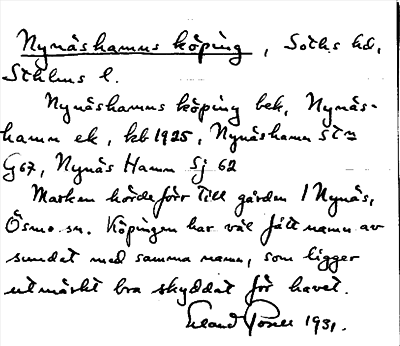 Nynäshamns köping, Soth.s hd,
Sthlms l.
Nynäshamns köping bek, Nynäs-
hamn ek, kb 1925, Nynäshamn st=
G67, Nynäs Hamn Sj 62
Marken hörde förr till gården Nynäs,
Ösmo sn. Köpingen har väl fått namn av
sundet med samma namn, som ligger
utmärkt bra skyddat för havet.
Erland 1931.